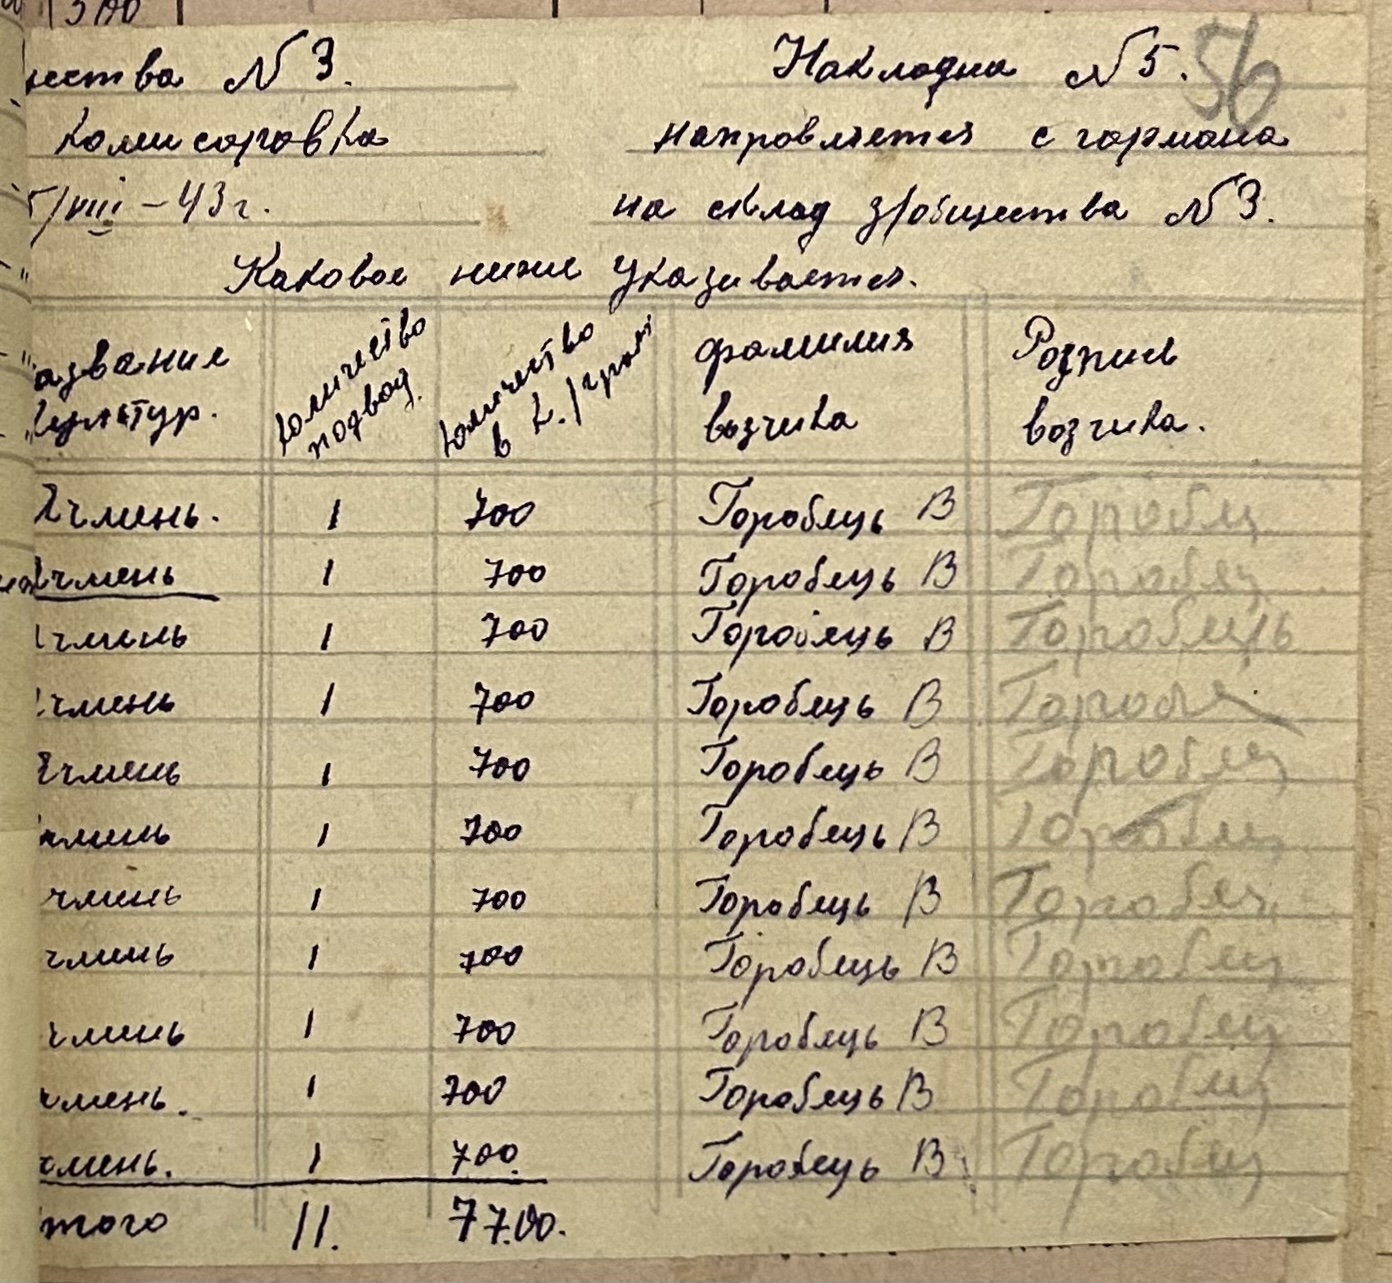 щества №3. Накладна №5. 56
Комисаровка направляется с гормана
5/VIII – 43 г. на склад з/общества №3.
Каковое ниже указывается.
азвание количество количество фамилия Розпись
культур. подвод. в к./грам возчика возчика.
Ячмень. 1 700 Горобець В Горобец
Ячмень 1 700 Горобець В Горобец
чмень 1 700 Горобець В Горобець
чмень 1 700 Горобець В Горобе
Ячмень 1 700 Горобець В Горобец
чмень 1 700 Горобець В Горобец
чмень 1 700 Горобець В Горобец
чмень 1 700 Горобець В Горобец
чмень 1 700 Горобець В Горобец
чмень. 1 700 Горобець В Горобец
чмень. 1 700. Горобець В Горобец
того 11. 77.00.